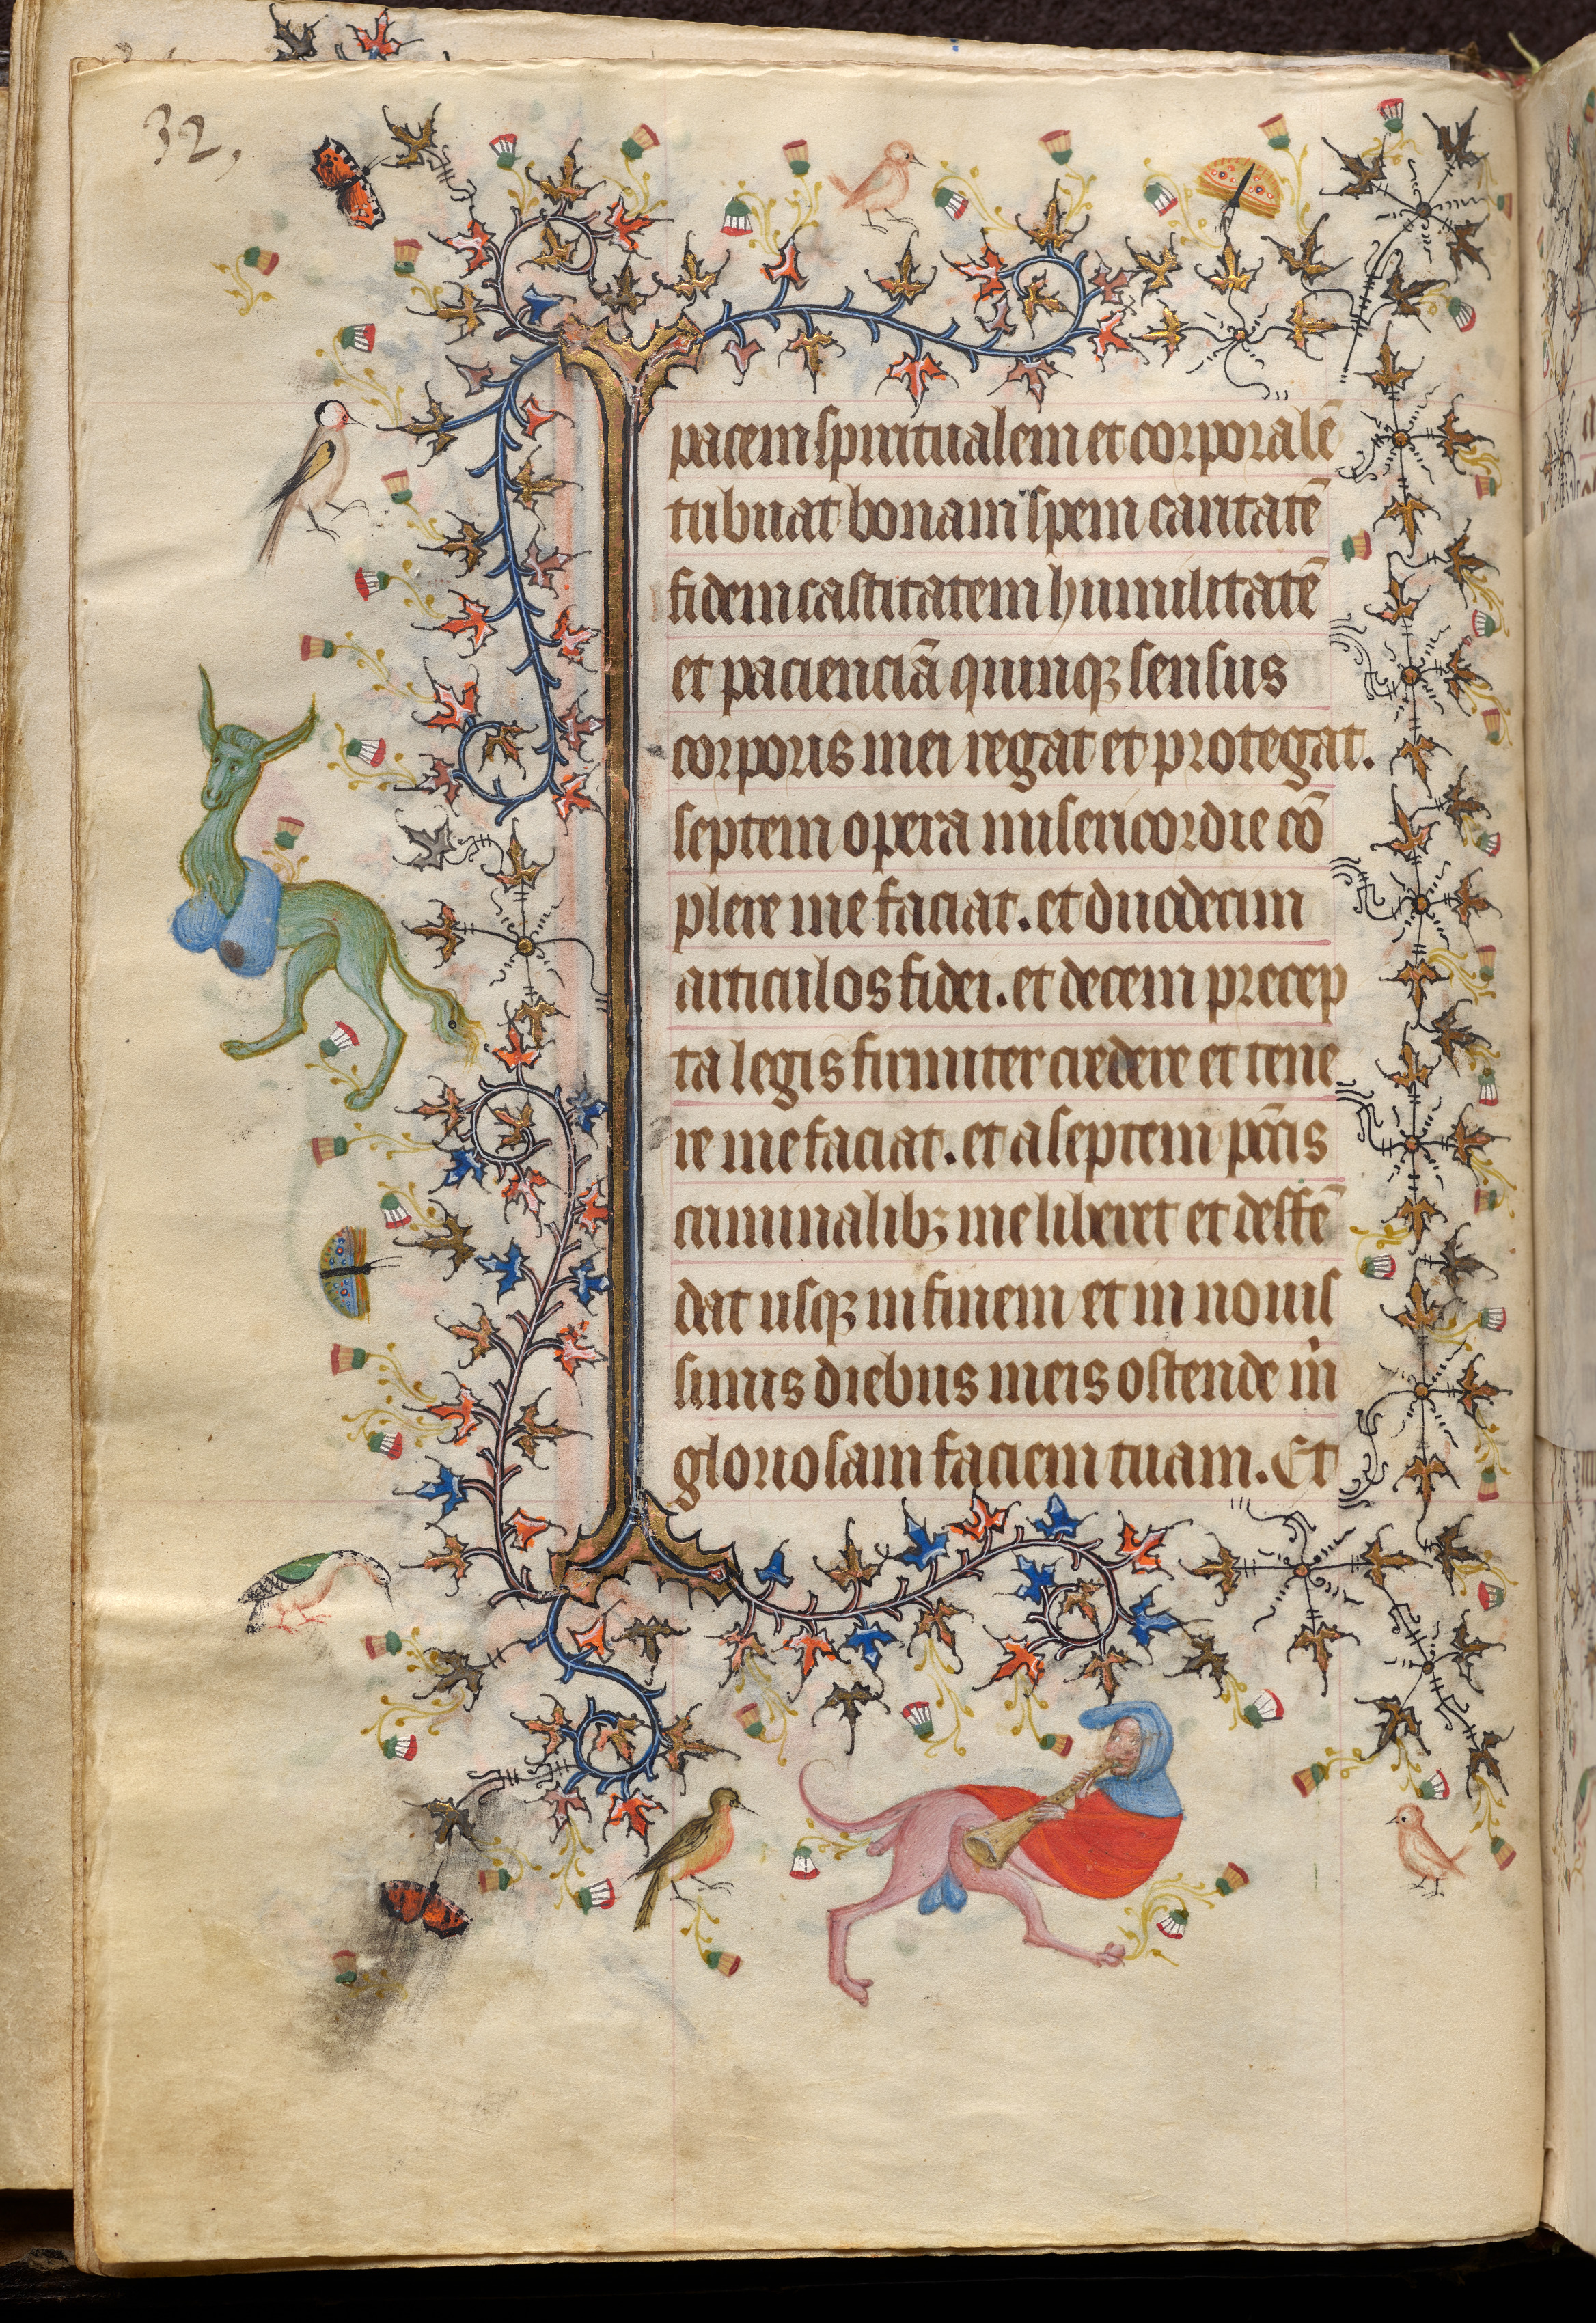 32,
pacem spiritualem et corporalē
tribuat bonam spem caritatē
fidem castitatem humilitatē
et pacienciā quinqꝫ sensus
corporis mei regat et protegat.
septem opera misericordie cō
plere me faciat. et duodecim
articulos fidei. et decem precep
ta legis firmiter credere et tene
re me faciat. et a septem pctīs
criminalibꝫ me liberet et deffē
dat usqꝫ in finem et in nouis
simis diebus meis ostende m̄
gloriosam faciem tuam. Et